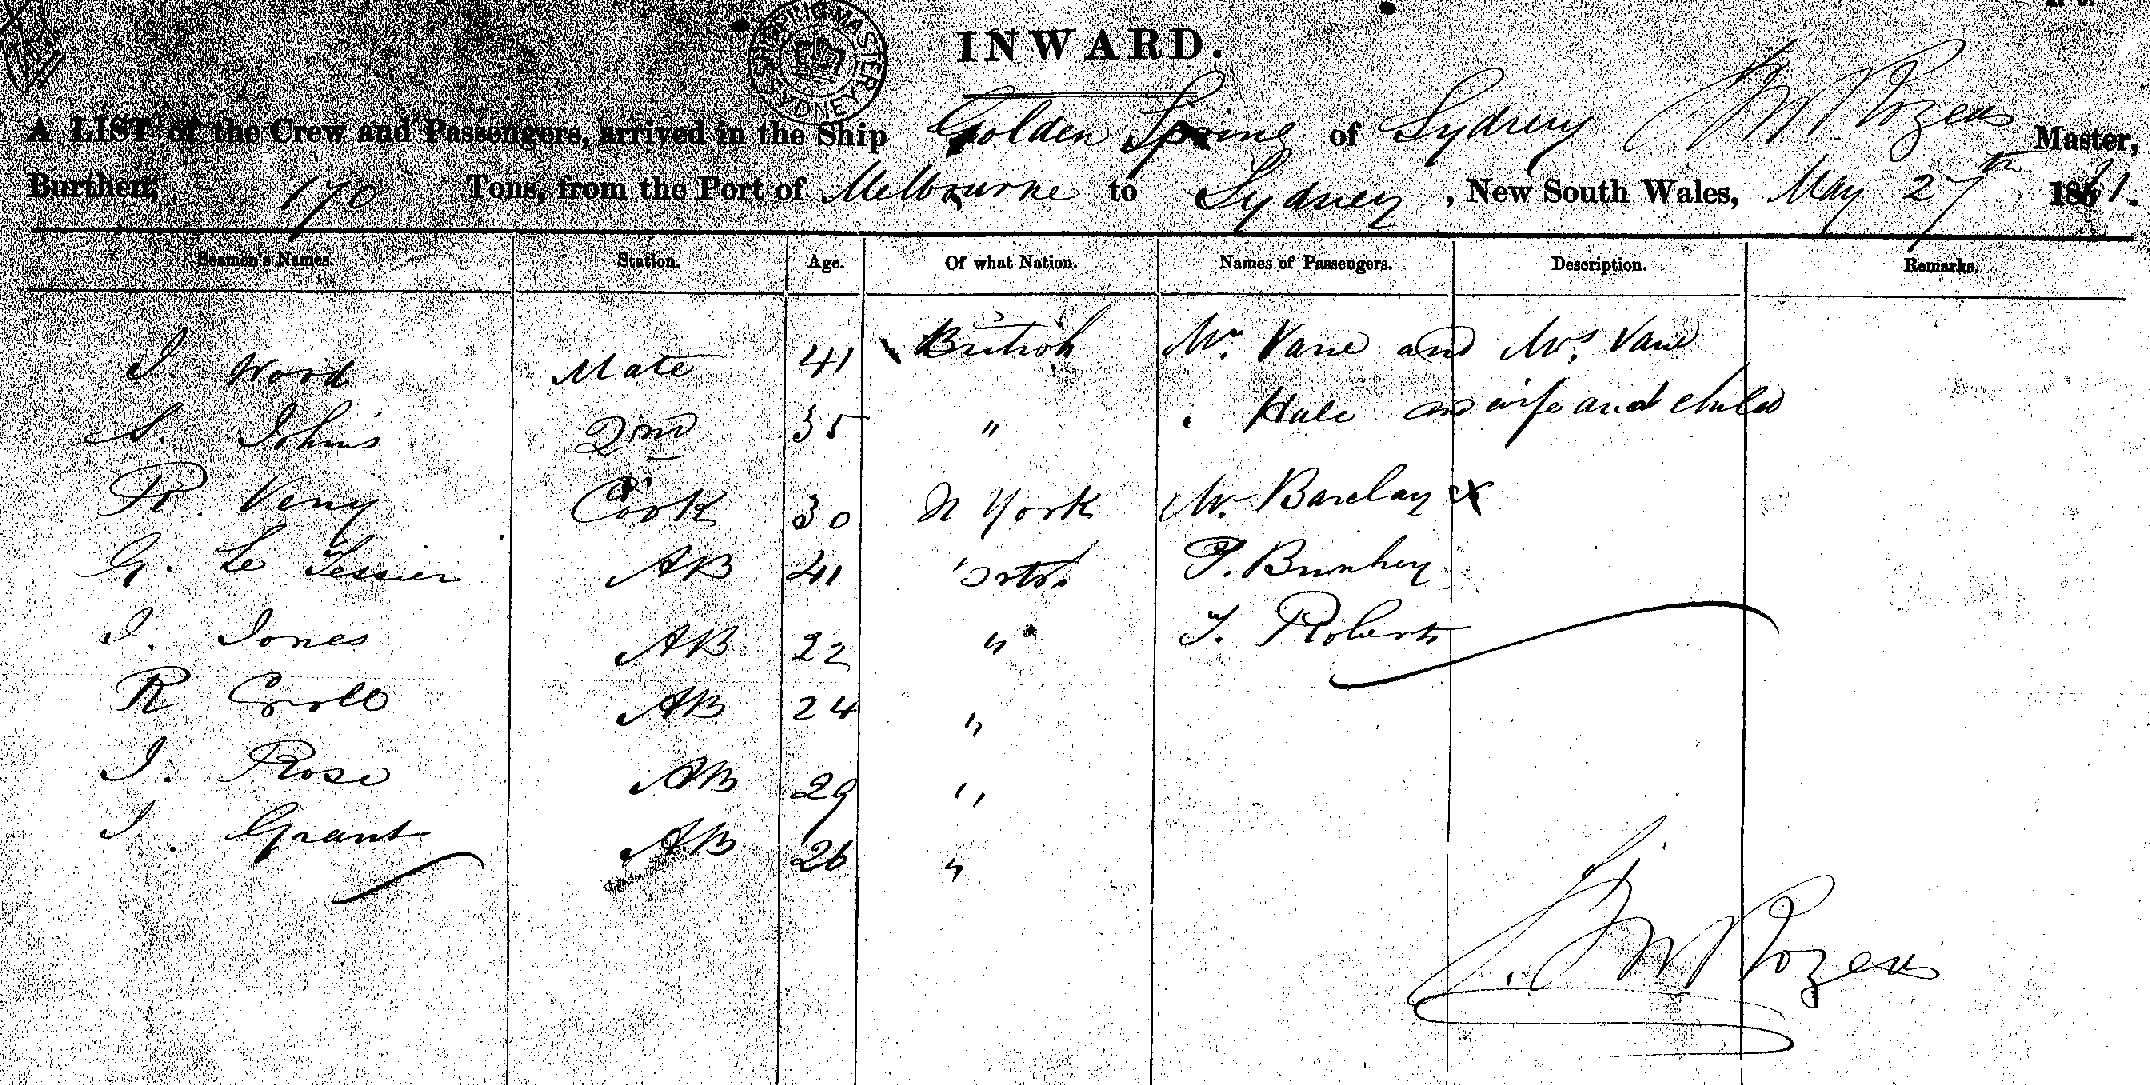 SHIPPING MASTER SYDNEY
INWARD.
A LIST of the Crew and Passengers, arrived in the Ship Golden Spring of Sydney Rozens Master,
Burthen, 170 Tons, from the Port of Melbourne to Sydney, New South Wales, May 27th 1861.
Seamen's Names. Station. Age. Of what Nation. Names of Passengers. Description. Remarks.
J. Wood Mate 41 British Mr. Vane and Mrs. Vane
S. Johns 2nd 35 " Hale and wife and child
R. Very Cook 30 N York Mr. Barclay x
G. Le Tessier AB 41 P. Bunkey
J. Jones AB 22 " T. Roberts
R Croll AB 24 "
J. Rose AB 29 "
J. Grant AB 26 "
Rozens